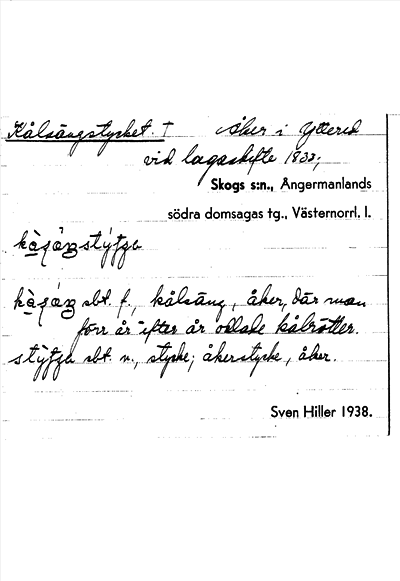 Kålsängstycket. † Åker i Yttered
vid lagaskifte 1833;
Skogs s:n., Ångermanlands
södra domsagas tg., Västernorrl. l.
sbt. f., kålsäng, åker, där man
förr år efter år odlade kålrötter.
sbt. n., stycke; åkerstycke, åker.
Sven Hiller 1938.